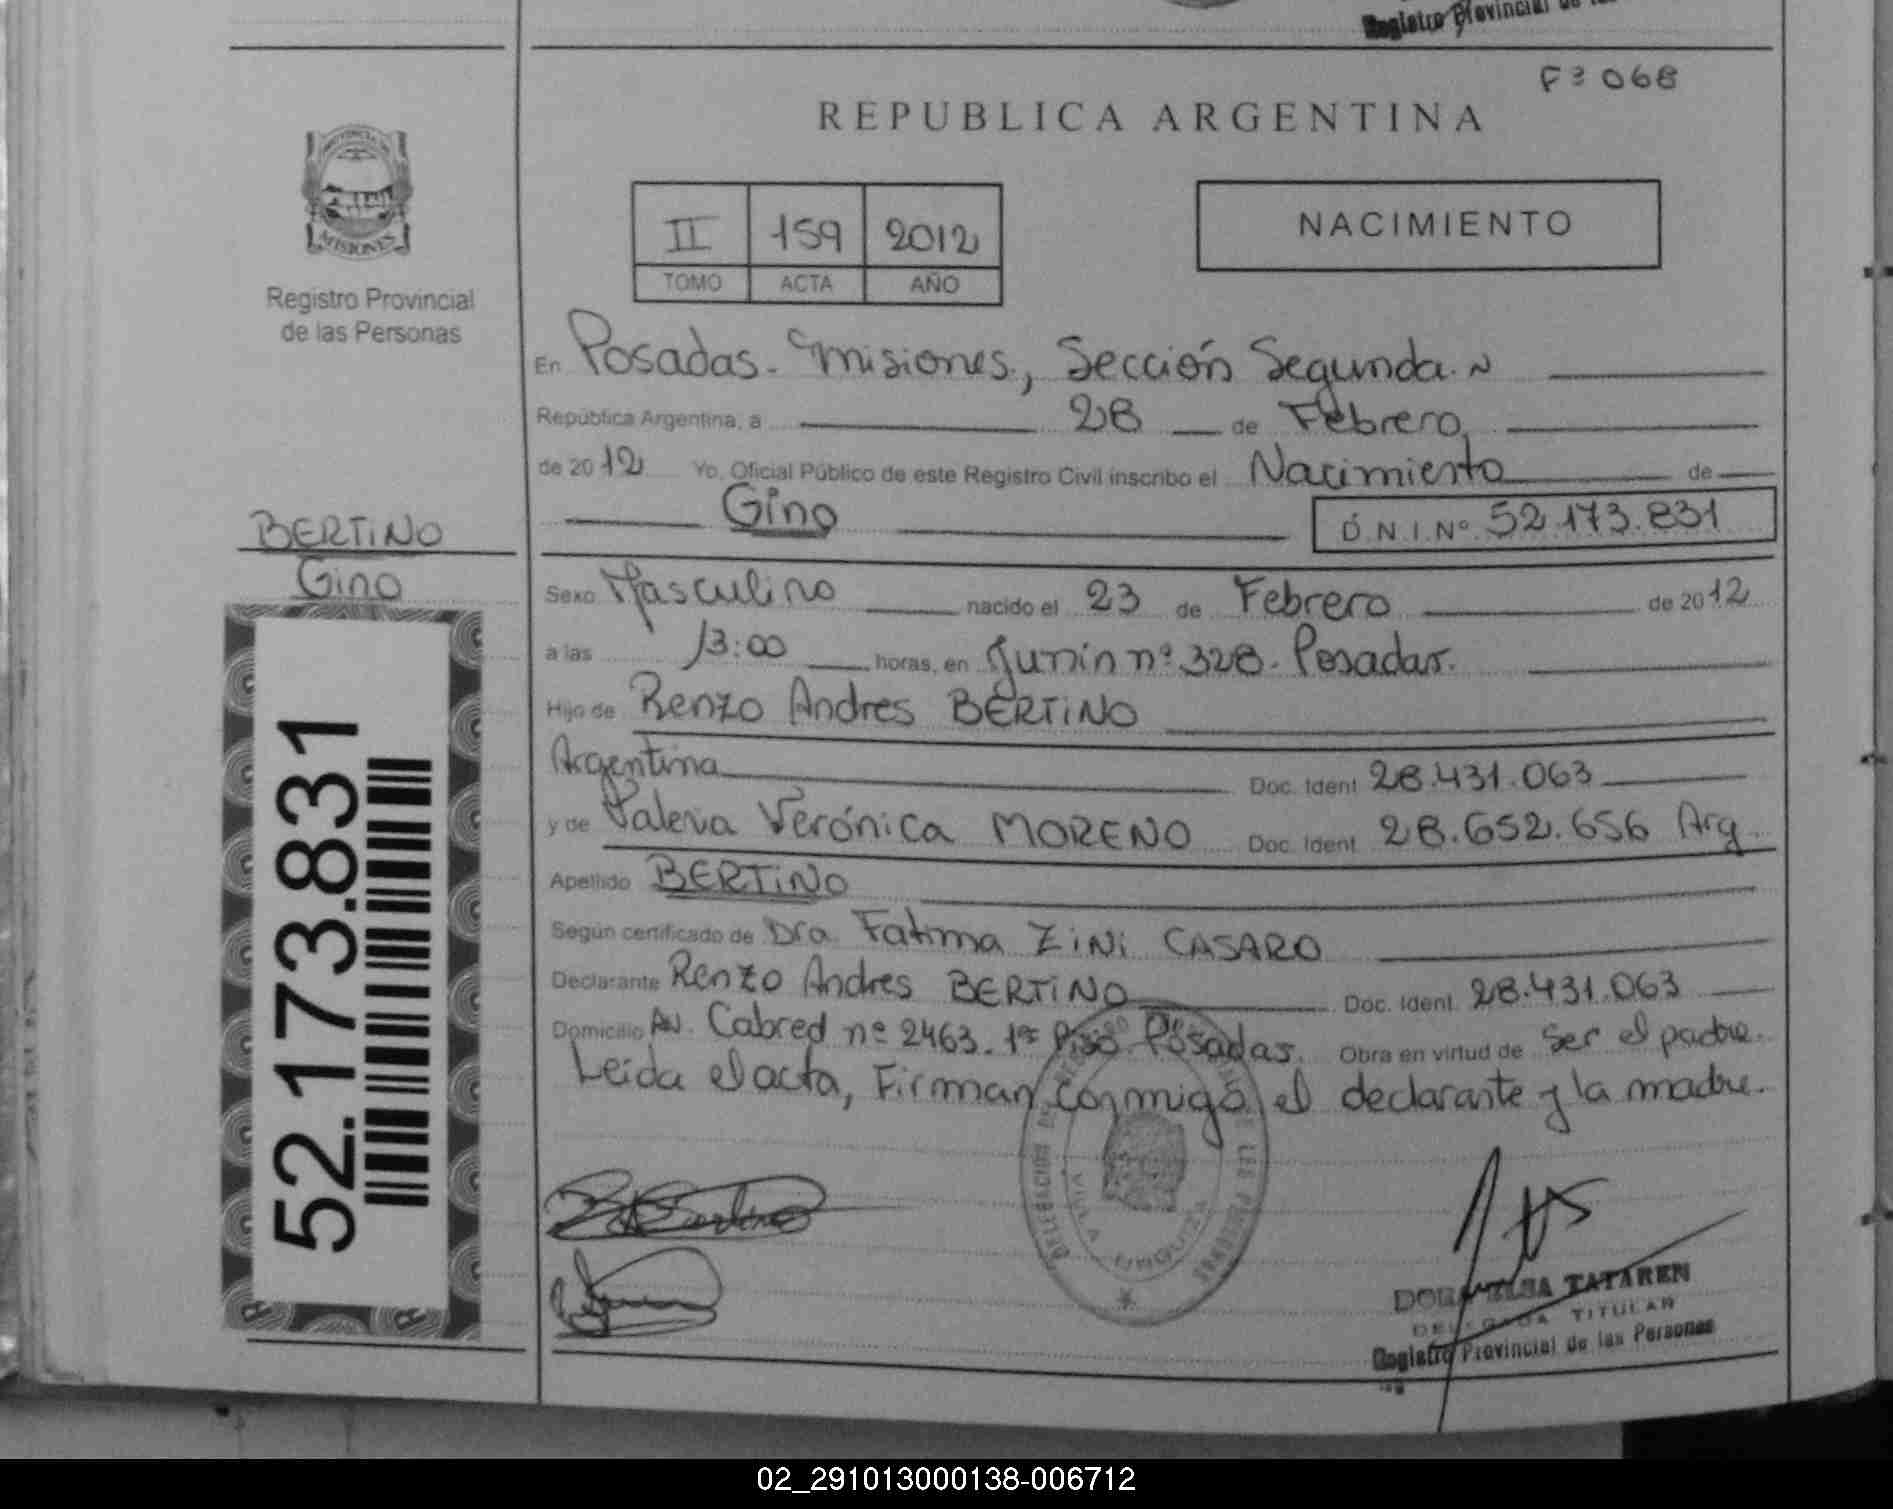 Registro Provincial de las
Fº 068
REPUBLICA ARGENTINA
PROVINCIA DE
MISIONES
Registro Provincial
de las Personas
II 159 2012
TOMO ACTA AÑO
NACIMIENTO
En Posadas - Misiones, Sección Segunda. ~
República Argentina, a 28 de Febrero,
de 2012 Yo, Oficial Público de este Registro Civil inscribo el Nacimiento de
Gino D.N.I.Nº 52.173.831
BERTINO
Gino
Sexo Masculino nacido el 23 de Febrero de 2012
a las 13:00 horas, en Junín nº 328. Posadas.
Hijo de Renzo Andres BERTINO
Argentina Doc. Ident 28.431.063
y de Valeria Verónica MORENO Doc. Ident 28.652.656 Arg
Apellido BERTINO
Según certificado de Dra. Fatima ZINI CASARO
Declarante Renzo Andres BERTINO Doc. Ident. 28.431.063
Domicilio Av. Cabred nº 2463. 1er Piso. Posadas. Obra en virtud de ser el padre.
Leída el acta, Firman conmigo el declarante y la madre.
52.173.831
VILLA URQUIZA
DORA ELSA TATAREN
DELEGADA TITULAR
Registro Provincial de las Personas
02_291013000138-006712